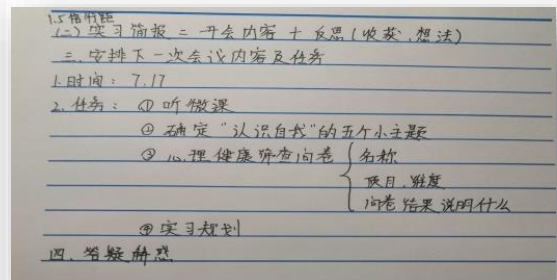 1.5倍行距
(二) 实习简报 = 开会内容 + 反思(收获、想法)
三、安排下一次会议内容及任务
1.时间: 7.17
2.任务: ① 听微课
② 确定“认识自我”的五个小主题
③ 心理健康筛查问卷 { 名称
题目、维度
问卷结果说明什么
④ 实习规划
四、答疑解惑